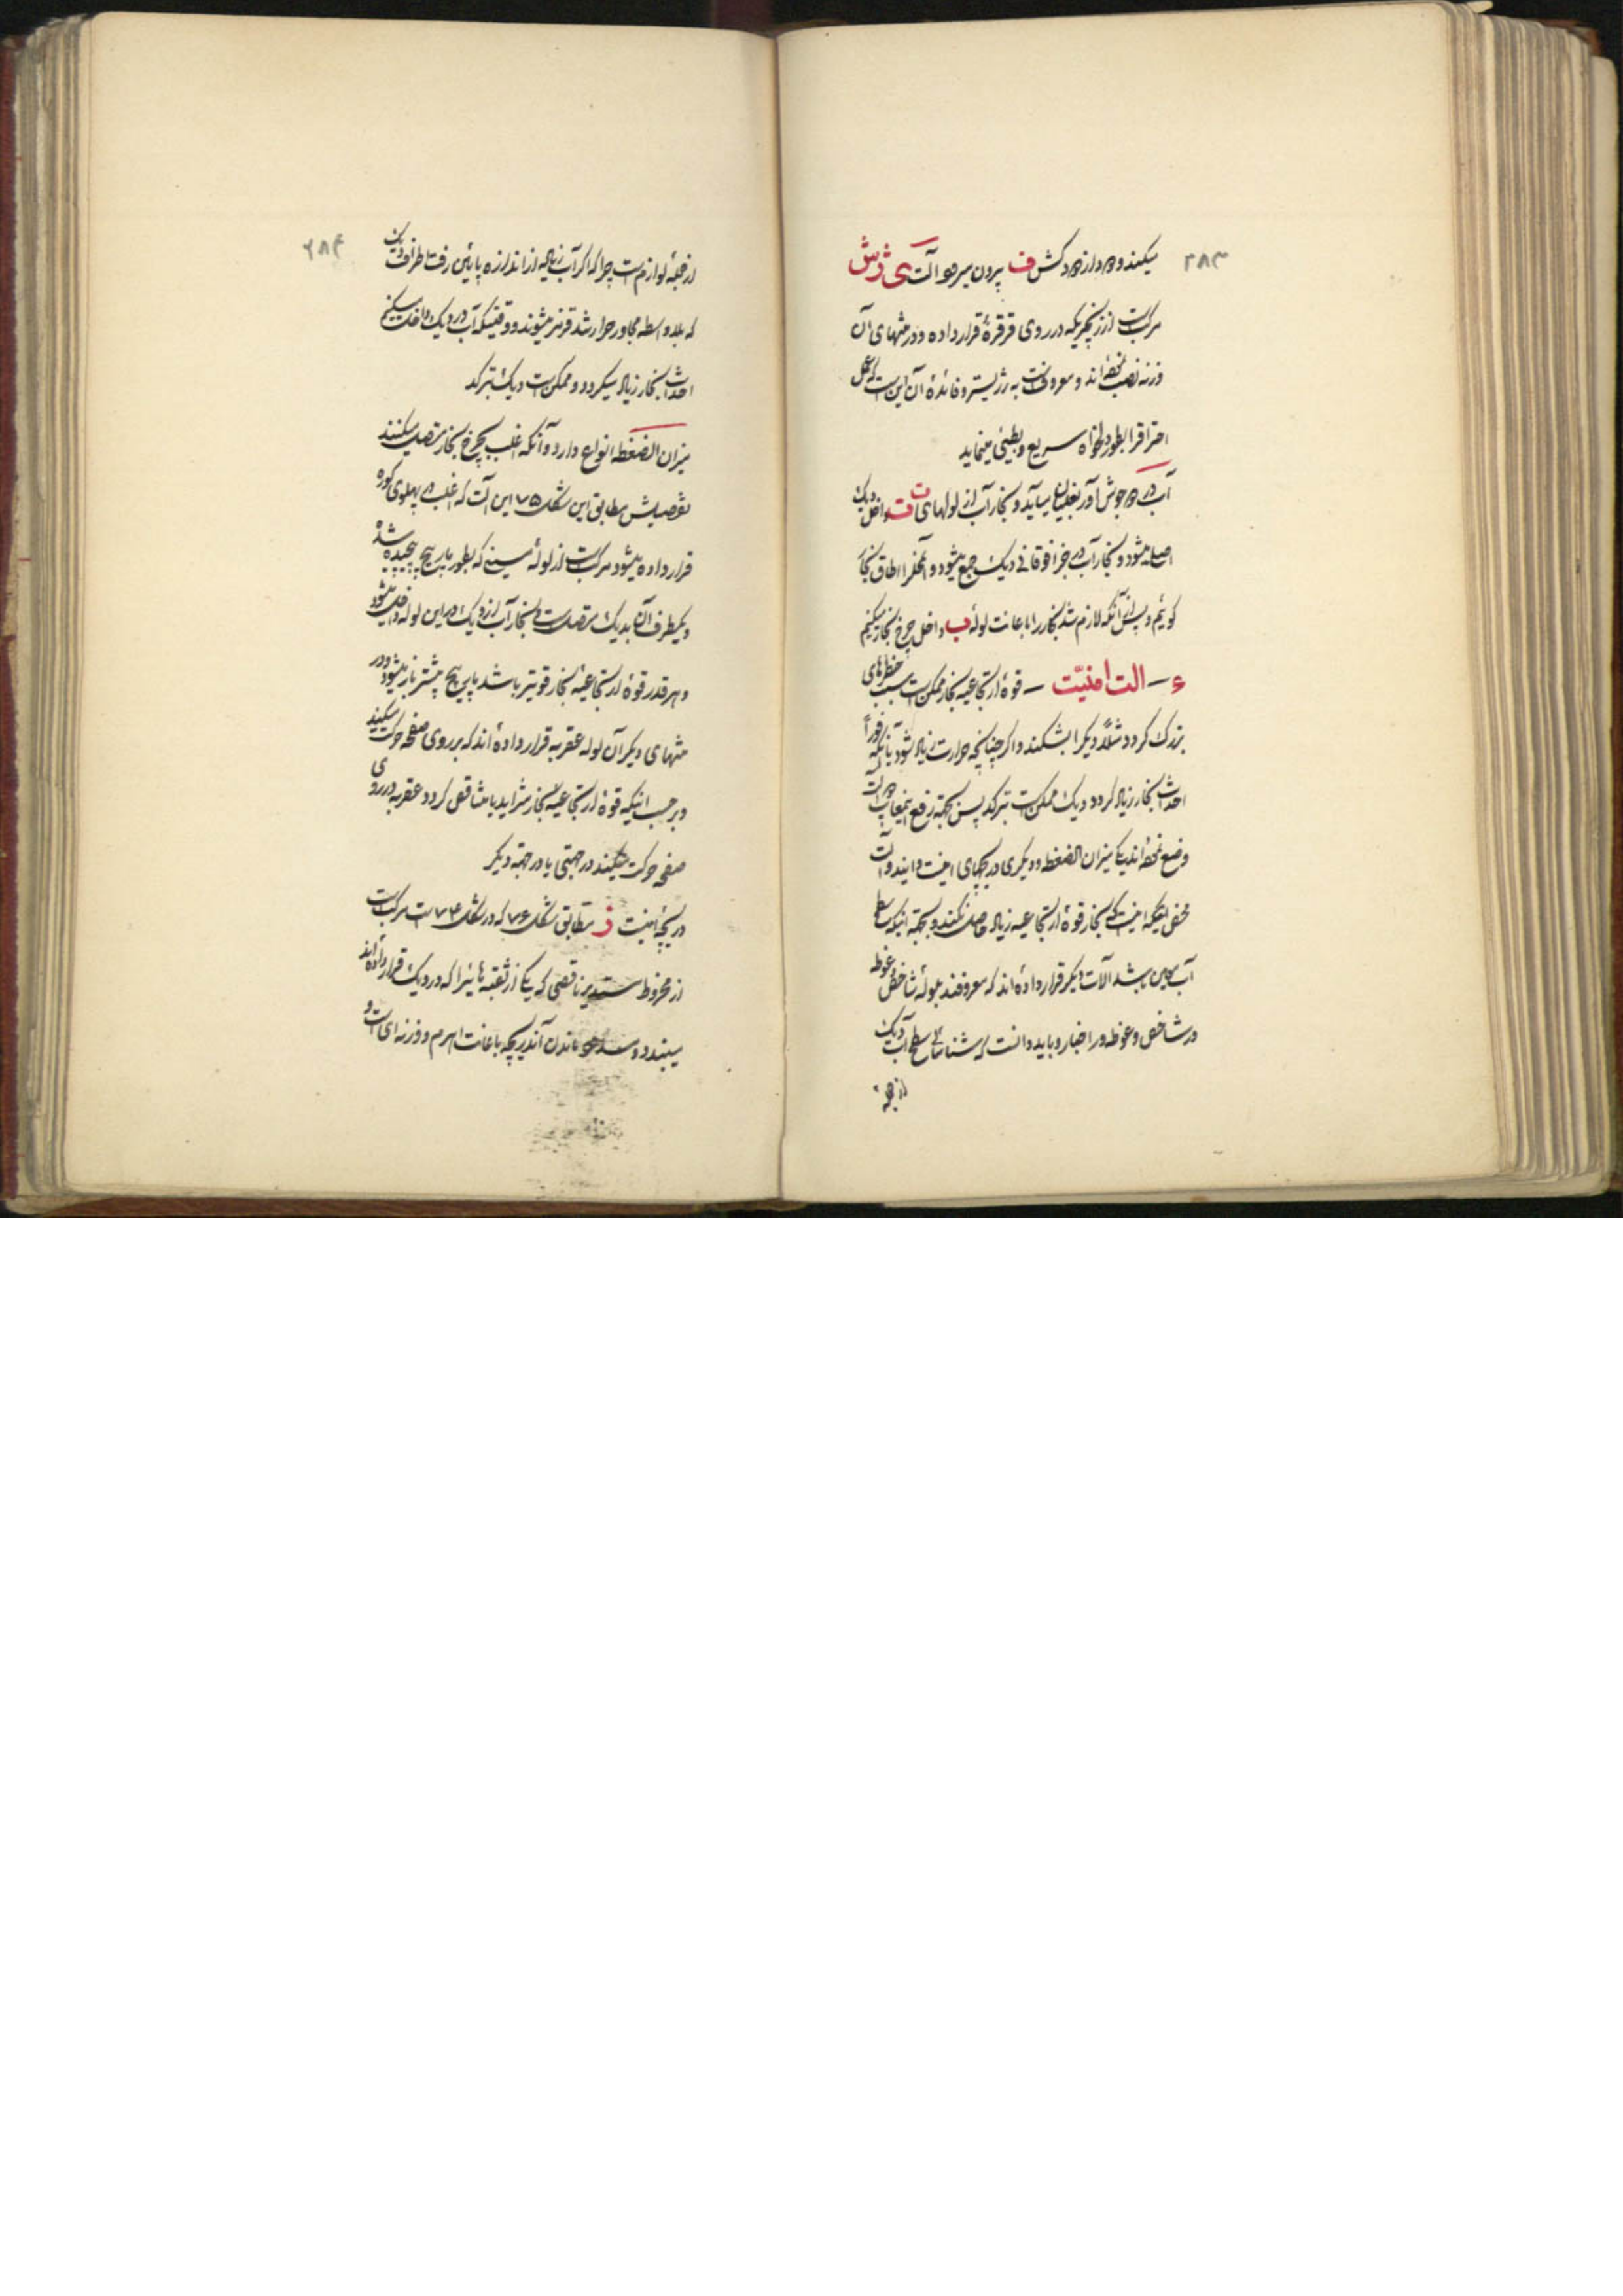 ۲۸۳
میکند و از دودکش ف بیرون میرود آلت ی ژ ش
مرکبست از زنجیریکه در روی قرقرۀ قرار داده و در منتهای آن
وزنه نصب نموده‌اند و معروفست به رژیستر و فائدۀ آن این است که عمل
احتراقرا بطور دلخواه سریع و بطیئی مینماید
آب در جوش‌آور بغلیان میآید و بخار آب از لولهای ت ت داخل دیک
اصلی میشود و بخار آب در جزء فوقانی دیک جمع میشود و آنمحلرا اطاق بخار
گوئیم و پس از آنکه لازم شد بخار را باعانت لولۀ ب داخل چرخ بخار میکنیم
ء — الت امنیّت — قوۀ ارتجاعیه بخار ممکن است سبب خطرهای
بزرک گردد مثلاً دیکرا بشکند و اگر چنانچه حرارت زیاد شود یا آنکه فوراً
احداث بخار زیاد گردد دیک ممکن است بترکد پس بجهة رفع اینمعایب دو آلت
وضع نموده‌اند یکی میزان الضغطه و دیگری دریچهای امنیت و ایندو آلت
محض اینکه امنیت که بخار قوۀ ارتجاعیه زیاد حاصل نکند و بجهة اینکه سطح
آب معین باشد آلات دیگر قرار داده‌اند که معروفند بلولۀ شاخص و غوطه
ور شاخص و غوطه‌ور اخبار و باید دانست که شناسائی سطح آب دیک
از جمله
۲۸۴
از جملۀ لوازم است چرا که اگر آب زیاده از اندازه پائین رفت اطراف دیک
که بلاواسطه مجاور حرارتند قرمز میشوند و وقتیکه آب در دیک داخل میکنیم
احداث بخار زیاد میگردد و ممکن است دیک بترکد
میزان الضغطه انواع دارد و آنکه اغلب بچرخ بخار متصل میکنند
تفصیلش مطابق این شکل ۷۵ این آلت که اغلب در پهلوی کوره
قرار داده میشود مرکبست از لولۀ مسینی که بطور مارپیچ پیچیده شده
و یکطرف آن بدیک متصل است و بخار آب از دیک در این لوله داخل میشود
و هر قدر قوۀ ارتجاعیۀ بخار قویتر باشد مارپیچ بیشتر باز میشود و در
منتهای دیگر آن لوله عقربه قرار داده‌اند که بر روی صفحه حرکت میکند
و بر حسب اینکه قوۀ ارتجاعیه بخار متزاید یا متناقص گردد عقربه در روی
صفحه حرکت میکند در جهتی یا در جهة دیگر
دریچۀ امنیت ذ مطابق شکل ۷۶ که در شکل ۷۴ است مرکب است
از مخروط مستدیر ناقصی که یکی از ثقبه‌هائیرا که در دیک قرار داده‌اند
میبندد و ماندن آندریچه باعانت اهرم و وزنه ایست و